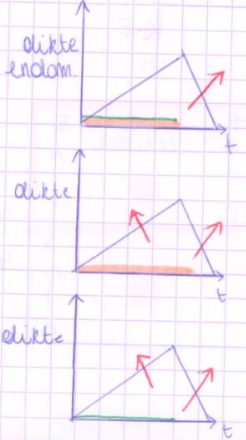 dikte
endom.
t
dikte
t
dikte
t